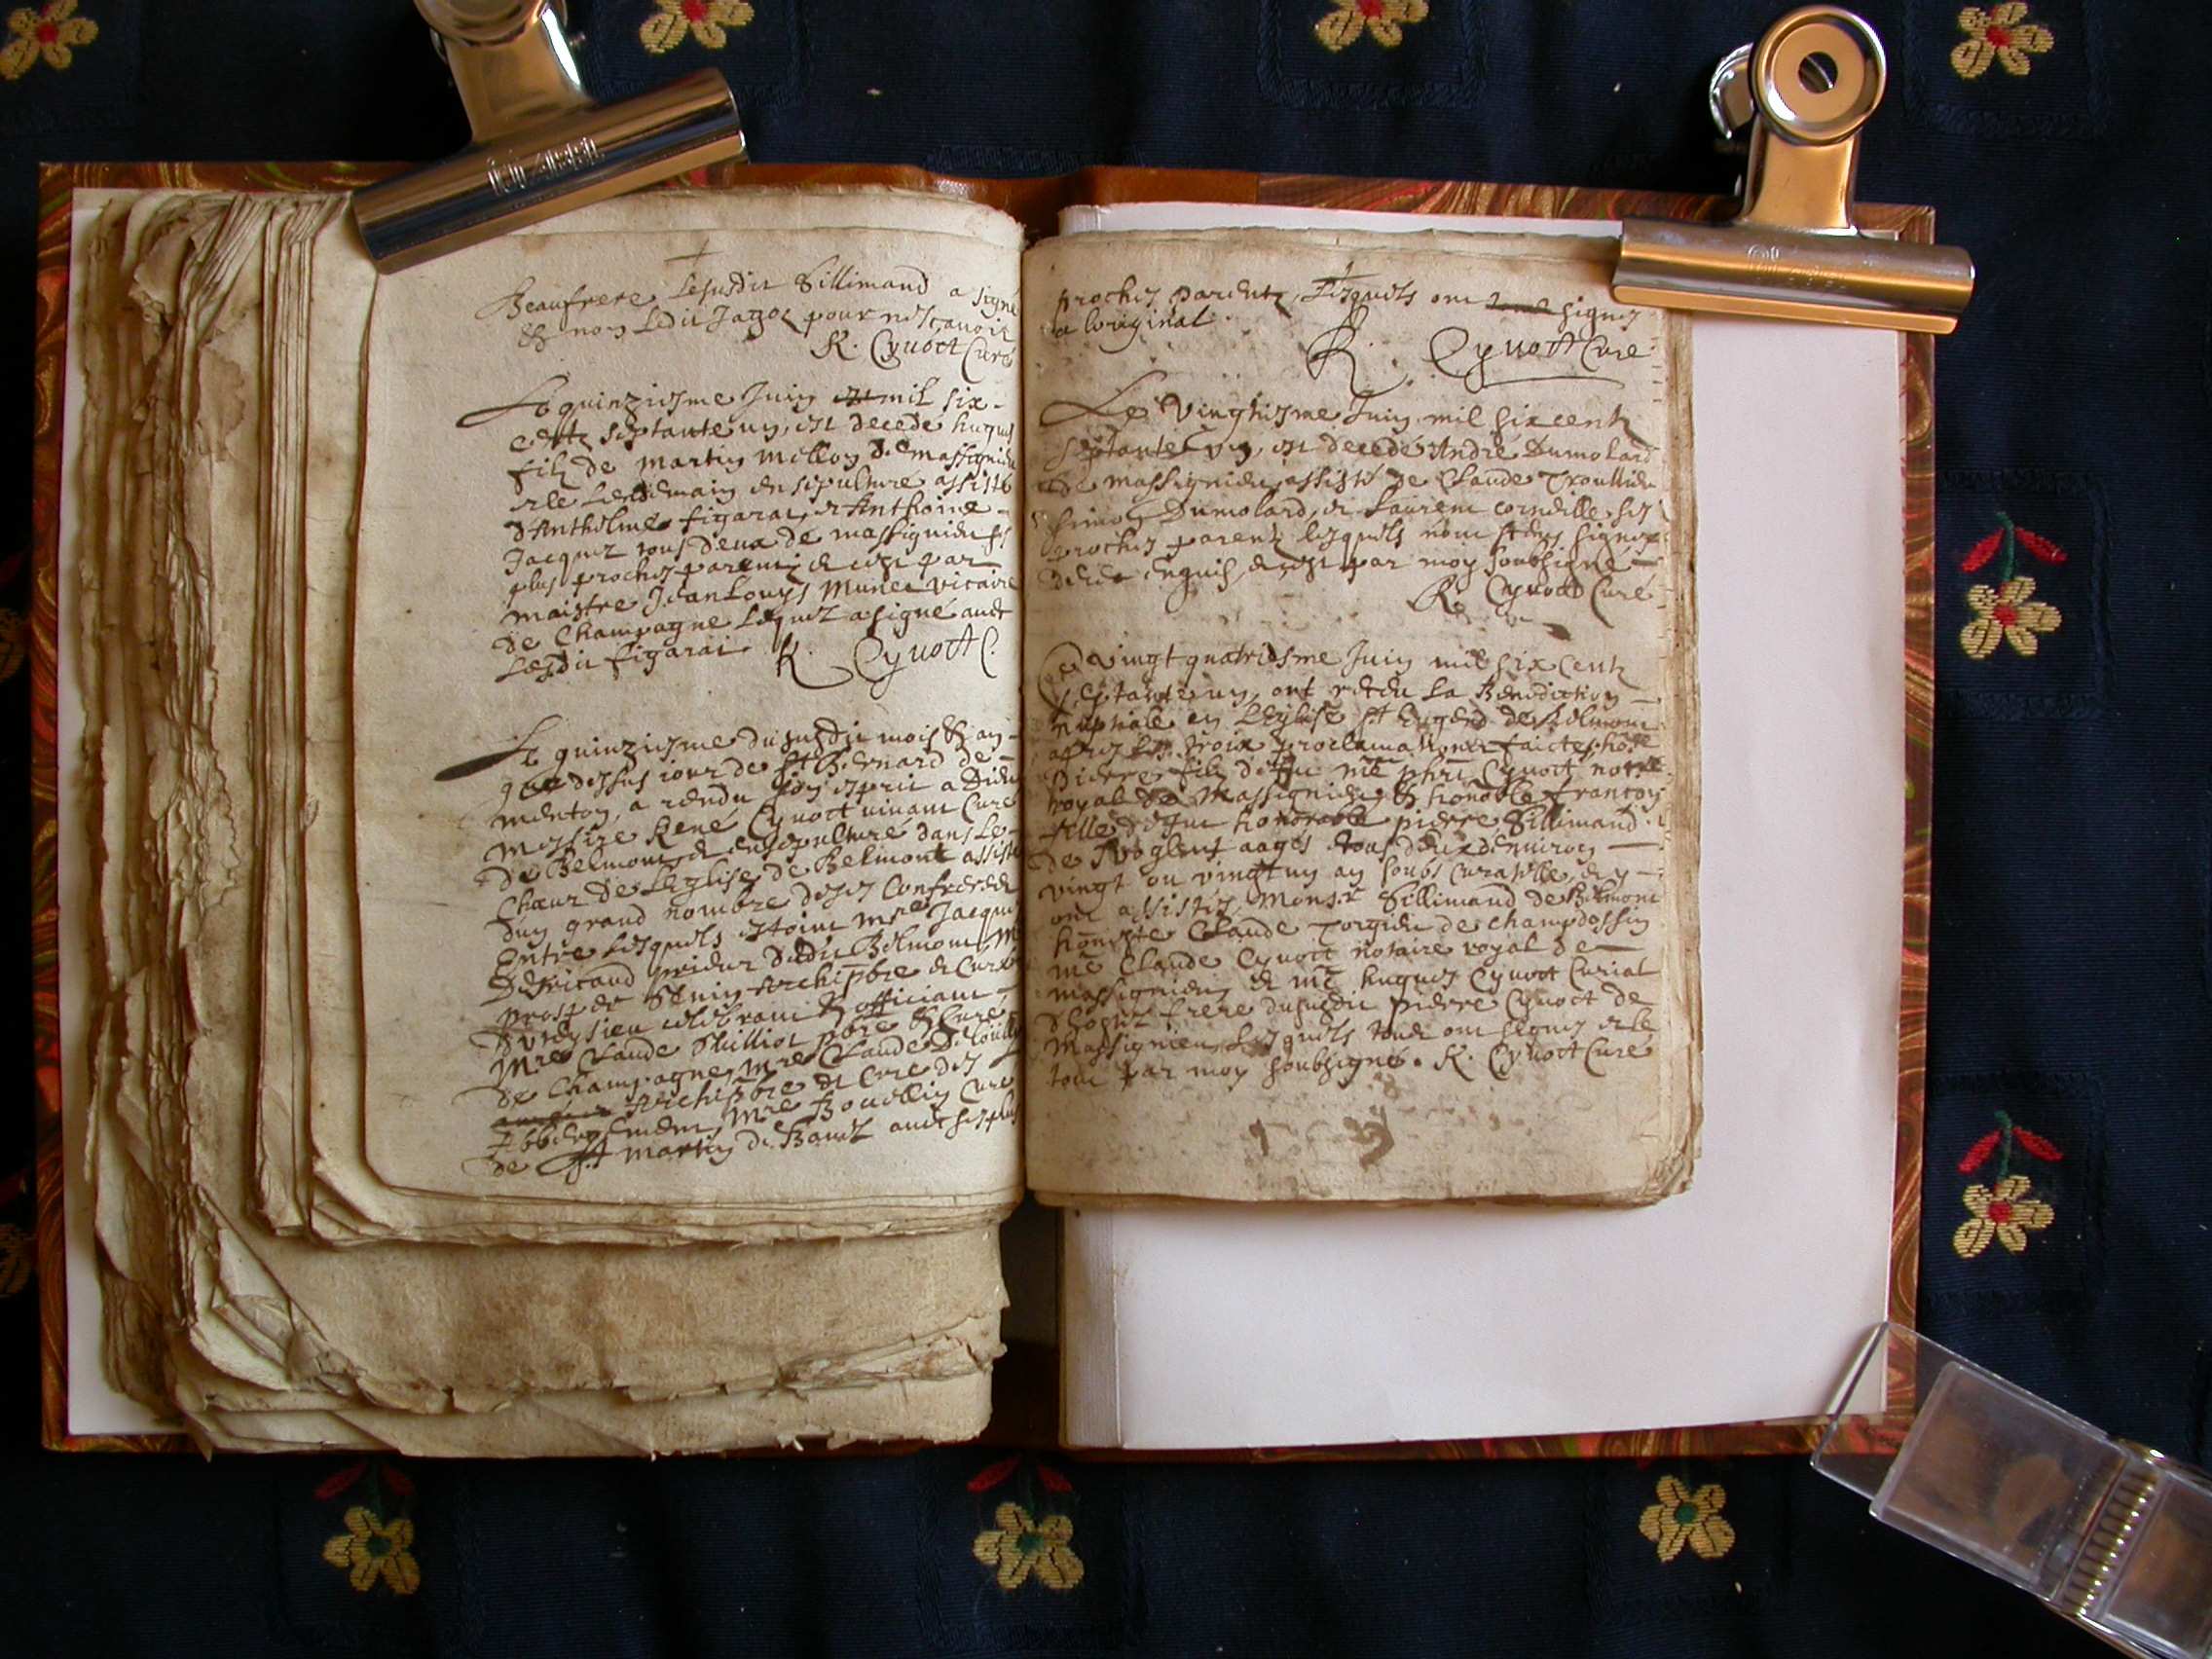 Beaufrere Lesusdit Sillimand a signé
& non Ledit Jagoz pour ne sçavoir
R. Cyvoct Curé
Le quinziesme Juin mil six
centz septante un, est decede hugues
filz de martin millon de massignieu
et le Lendemain en sepulture assisté
d'Anthelme figarai, et Anthoine
Jacquez tous deux de massignieu ses
plus proches parentz et cest par
maistre Jean Louys Munet vicaire
de Champagne Lequel a signé avec
Lesdit figarai R. Cyvoct C.
Le quinziesme du susdit mois & an
que dessus jour de St Bernard de
menton, a rendu son esprit a Dieu
messire René Cyvoct vivant Curé
de Belmont, et ensepulturé dans Le
Chœur de Leglise de Belmont assisté
dun grand nombre de ses Confreres
Entre Lesquels estoint mre Jacques
prieur dudit Belmont, Mre
Archipbre et Curé
celebrant & officiant
mre Claude pbre & Curé
de Champagne, mre Claude
Archipbre et Cure des
mre Bovellin Curé
de St martin de Bavel avec ses plus
proches parentz, Lesquels ont signes
a loriginal
R. Cyvoct Cure
Le vingtiesme Juin mil six centz
septante un, est decedé André Dumolard
de massignieu, assisté de Claude Troullieu
Simon Dumolard, et Laurent corneille ses
proches parentz lesquels nont signes
enquis, et cest par moy soubsigné
R. Cyvoct Curé
Le vingt quatriesme Juin mil six Centz
septante un, ont receu La Benediction
nuptiale en LEglise St Eugend de Belmont
apres Les trois proclamations faictes, hoble
Pierre filz de feu me phri Cyvoct, notre
royal de Massignieu & honoble francoys
fille de feu honorable pierre Sillimand
de Voglens aages tous deux denviron
vingt ou vingt un an soubs Curatelle, et y
ont assistes Monsr Sillimand de Belmont
honeste Claude Torgieu de champdossin
me Claude Cyvoct notaire royal de
massignieu et me hugues Cyvoct Curial
frere du susdit pierre Cyvoct de
Massignieu, Lesquels tous ont signes et le
tout par moy soubsigné. R. Cyvoct Curé